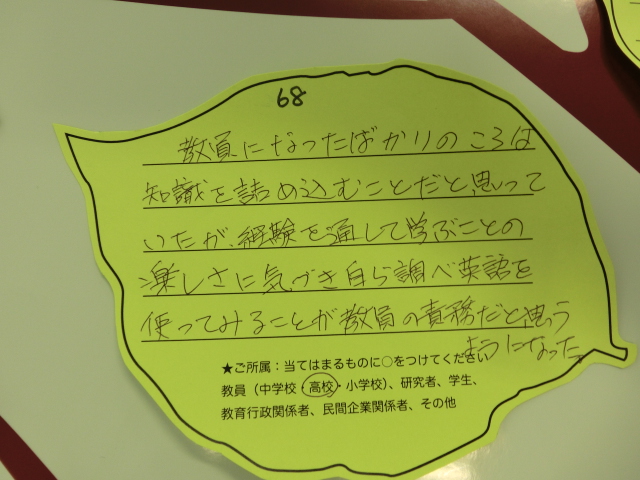 68
教員になったばかりのころは
知識を詰め込むことだと思って
いたが、経験を通して学ぶことの
楽しさに気づき自ら調べ英語を
使ってみることが教員の責務だと思う
ようになった。
★ご所属：当てはまるものに○をつけてください
教員（中学校・高校・小学校）、研究者、学生、
教育行政関係者、民間企業関係者、その他